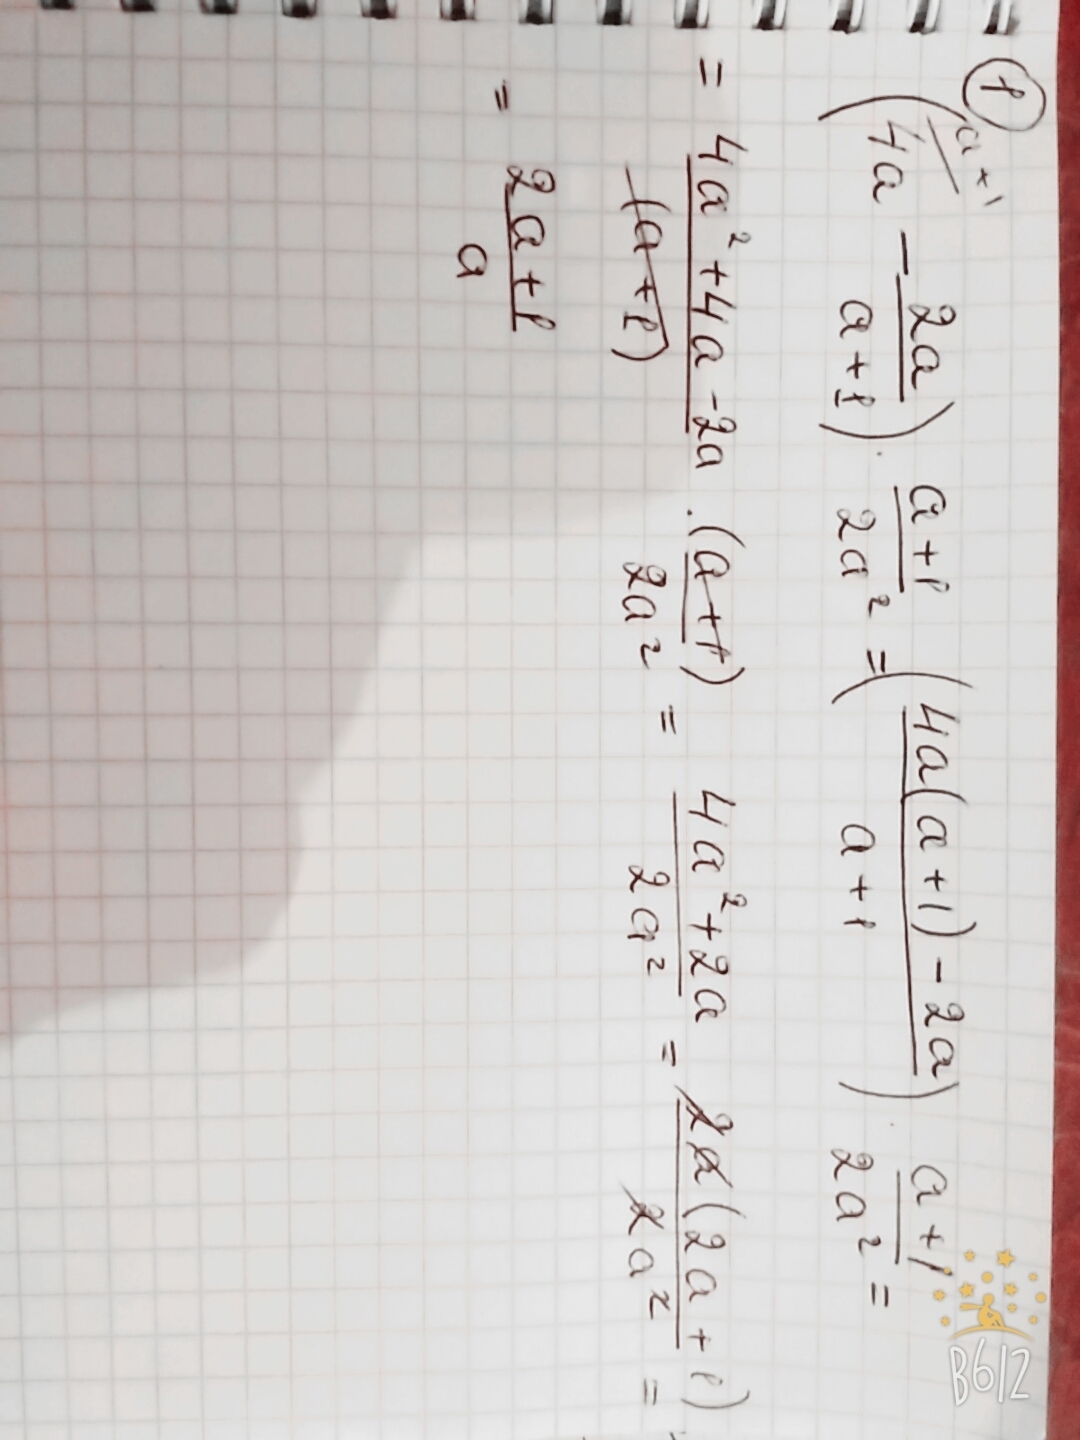 ①
(4a^{a+1} - 2a/(a+1)) · (a+1)/(2a²) = ((4a(a+1) - 2a)/(a+1)) · (a+1)/(2a²) =
= (4a² + 4a - 2a)/(a+1) · (a+1)/(2a²) = (4a² + 2a)/(2a²) = 2a(2a+1)/(2a²) =
= (2a+1)/a
B612